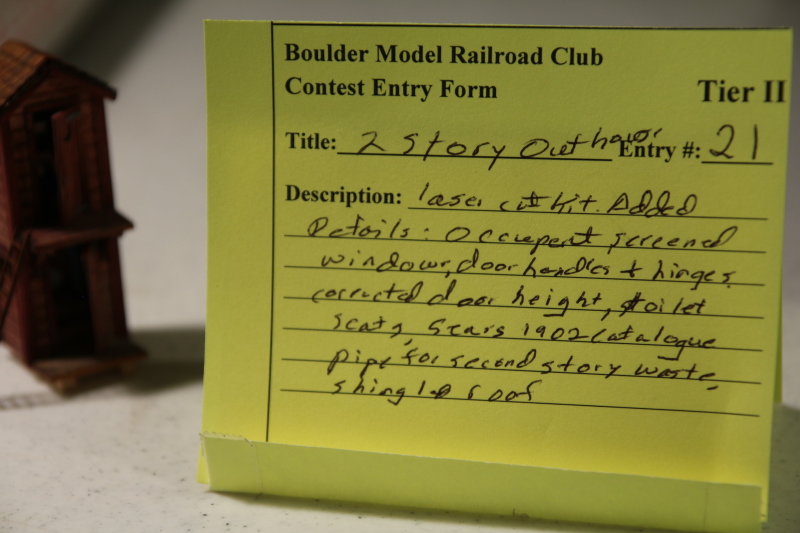 Boulder Model Railroad Club
Contest Entry Form Tier II
Title: 2 Story Outhouse Entry #: 21
Description: laser cut kit. Added
Details: Occupent, screened
windows, door handles + hinges,
corrected door height, toilet
seats, Sears 1902 catalogue
pipe for second story waste,
shingled roof